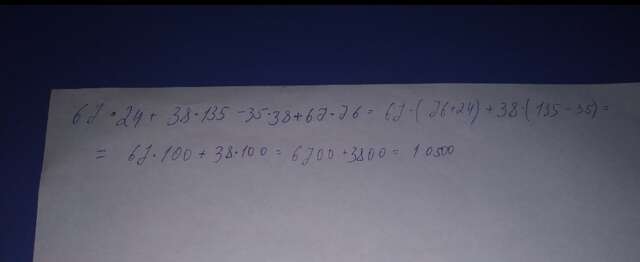 67·24 + 38·135 - 35·38 + 67·76 = 67·(76+24) + 38·(135-35) =
= 67·100 + 38·100 = 6700 + 3800 = 10500